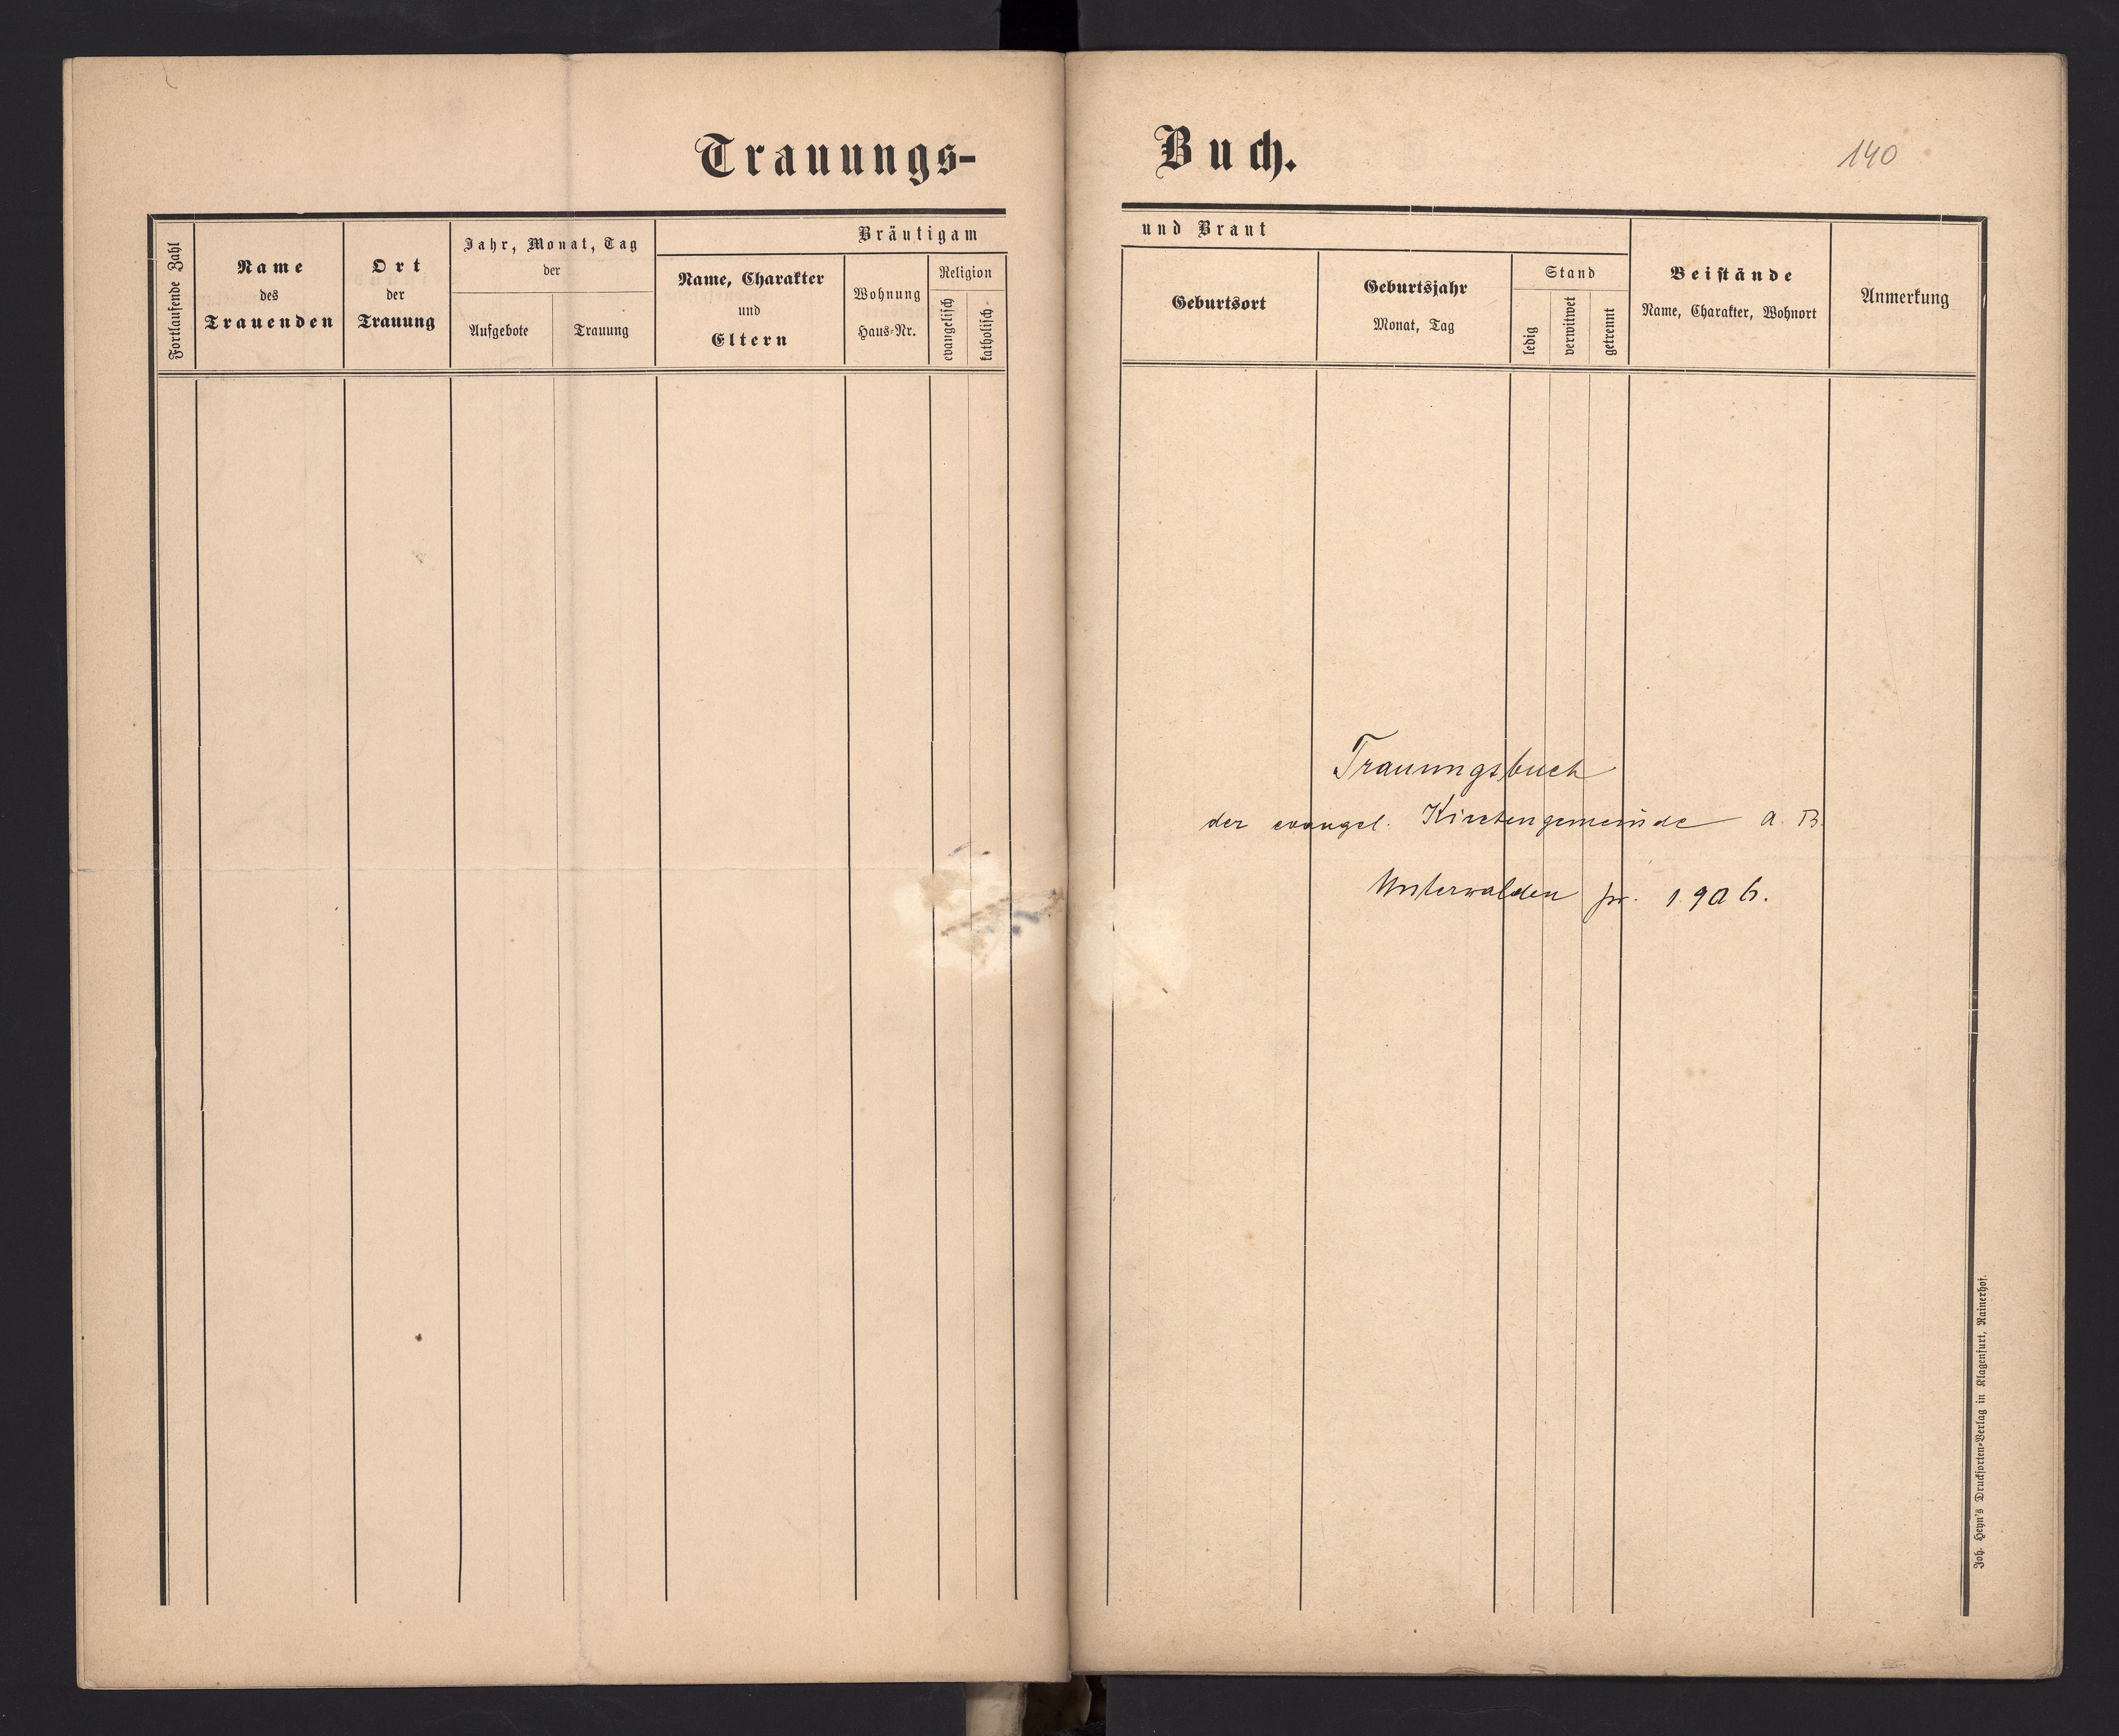 Trauungs-
Buch.
140
Fortlaufende Zahl
Name
des
Trauenden
Ort
der
Trauung
Jahr, Monat, Tag
der
Aufgebote
Trauung
Bräutigam
Name, Charakter
und
Eltern
Wohnung
Haus-Nr.
Religion
evangelisch
katholisch
und Braut
Geburtsort
Geburtsjahr
Monat, Tag
Stand
ledig
verwitwet
getrennt
Beistände
Name, Charakter, Wohnort
Anmerkung
Trauungsbuch
der evangel. Kirchengemeinde A. B.
Unterwalden pr. 1906.
Joh. Heyn's Drucksorten-Verlag in Klagenfurt, Rainerhof.